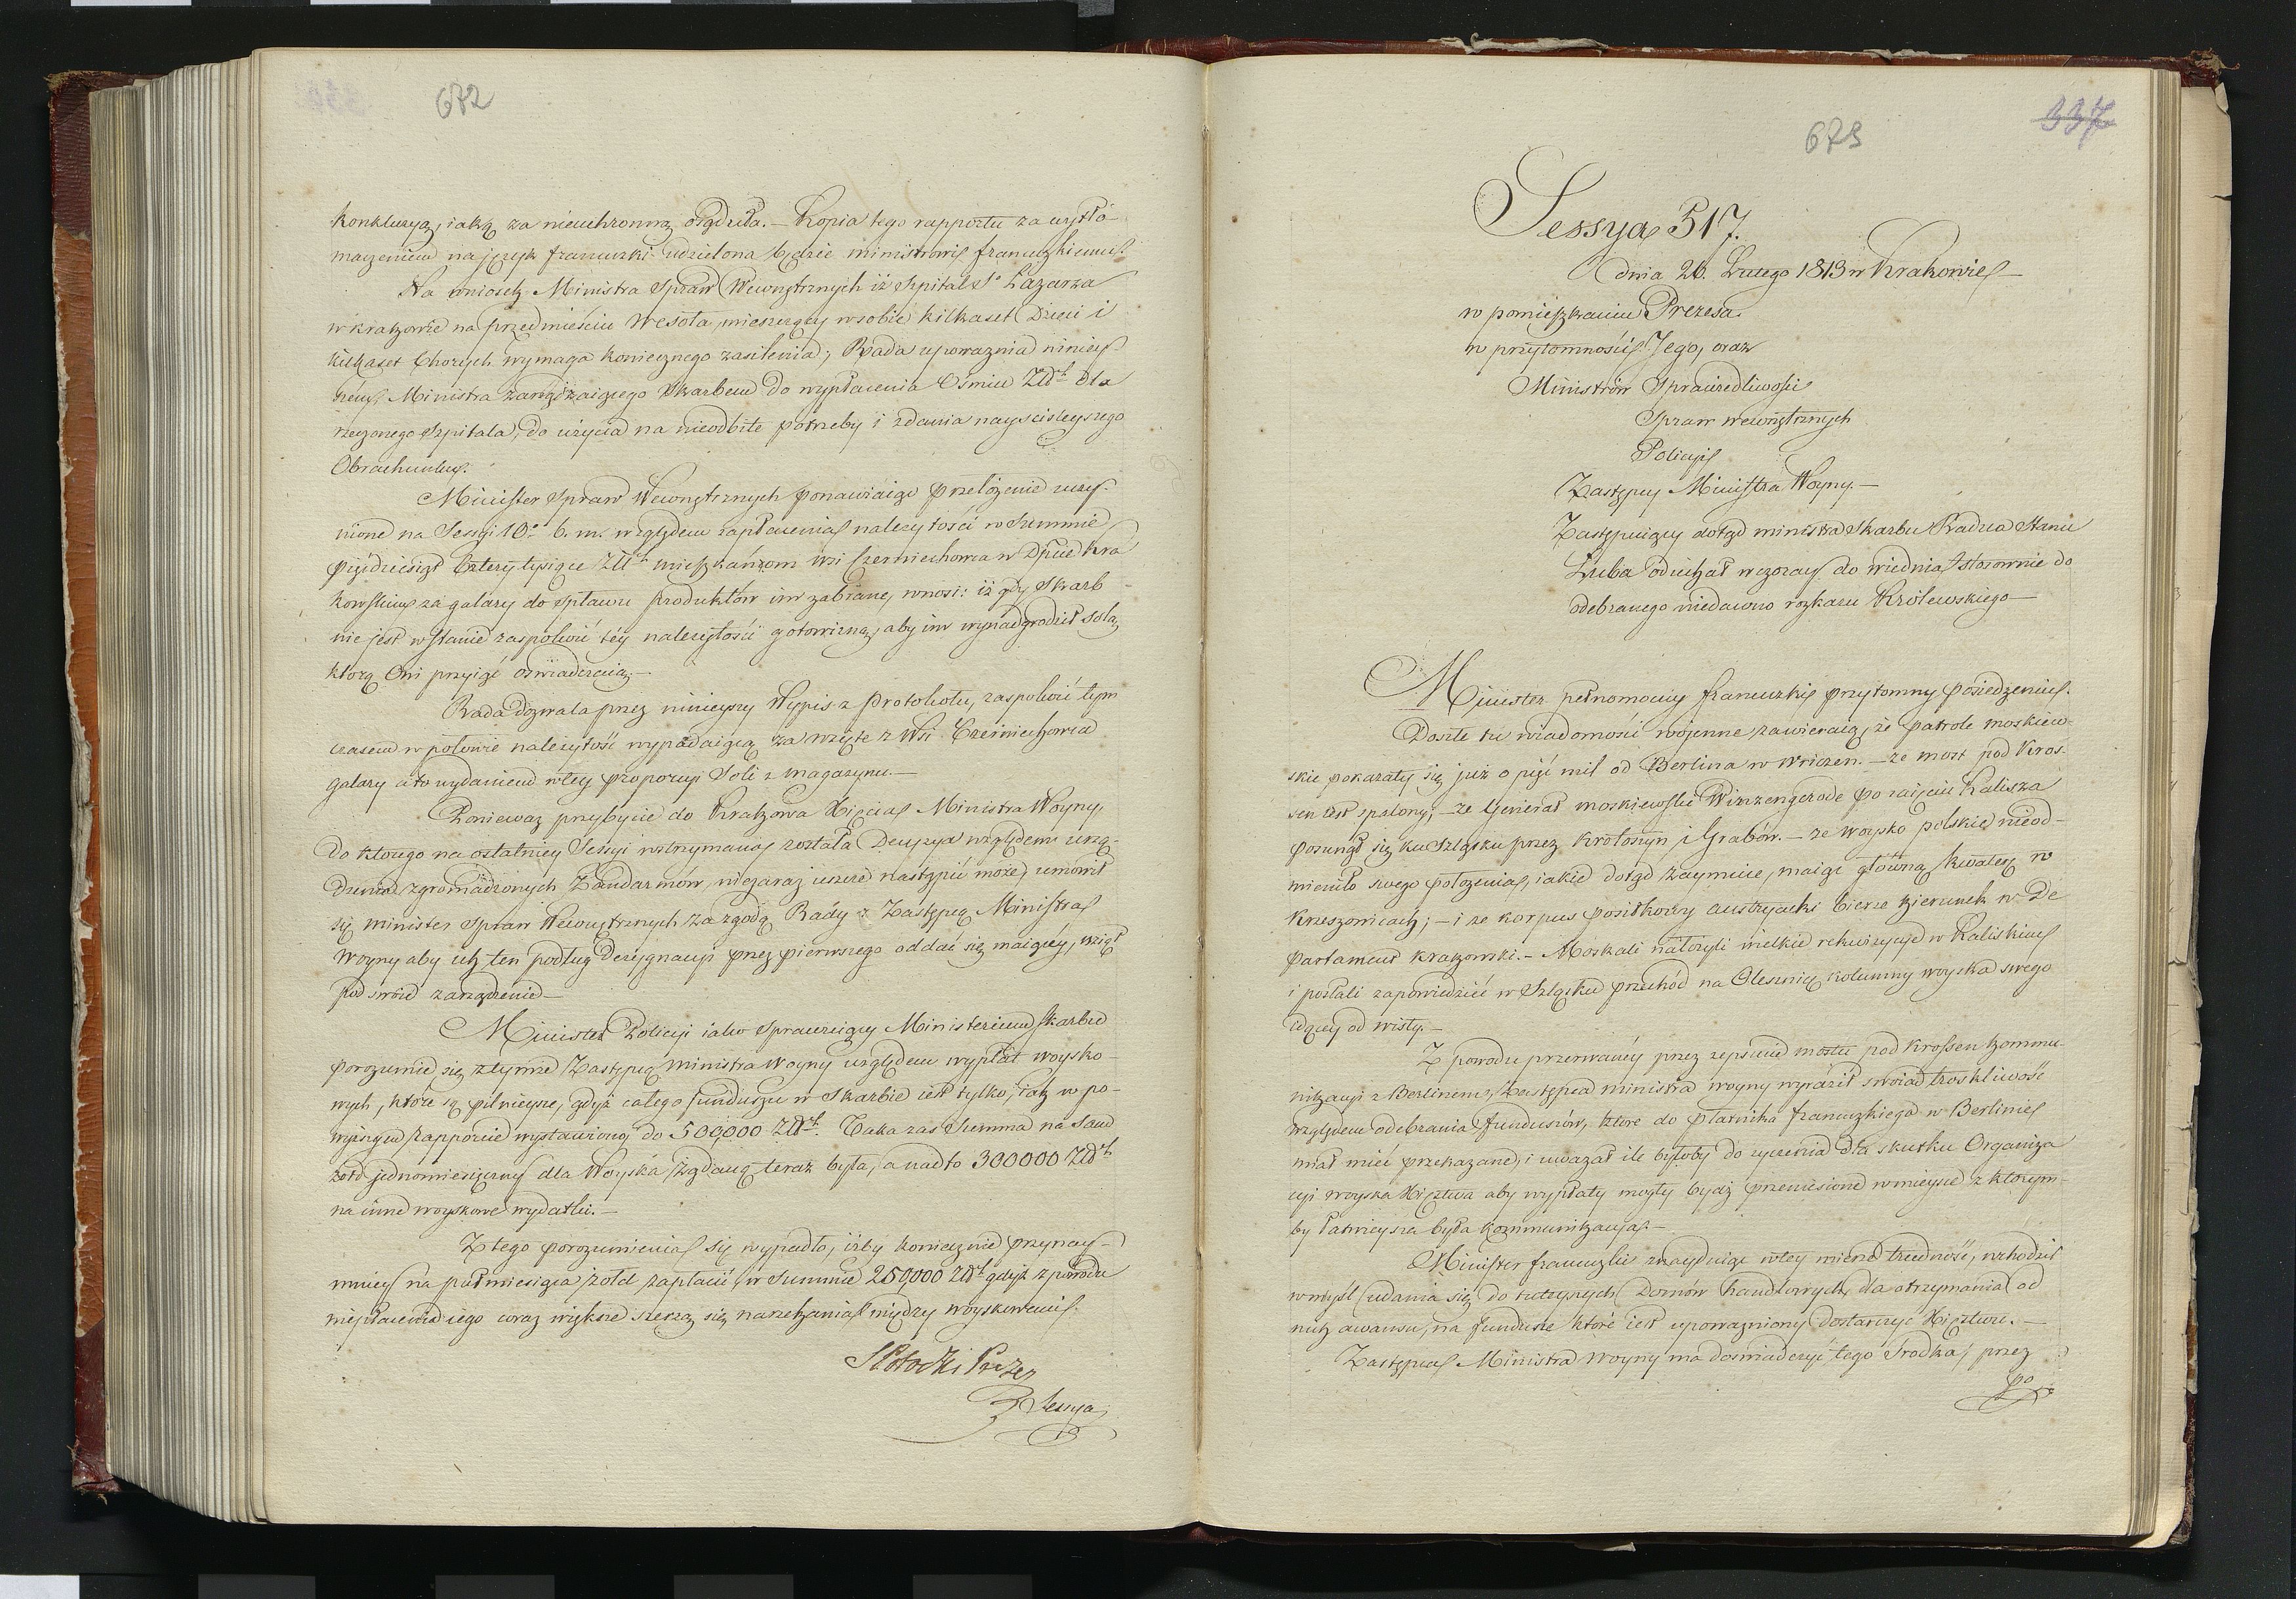 672
konkluzyą, iaką za nieuchronną osądziła. – Kopia tego rapportu za wytło-
maczeniem na język francuzki udzielona będzie ministrowi francuzkiemu.
Na wniosek Ministra Spraw Wewnętrznych iż Szpital So Łazarza
w krakowie na przedmieściu Wesoła, mieszczący w sobie kilkaset Dzieci i
kilkaset Chorych wymaga koniecznego zasilenia; Rada upoważnia niniey-
szém, Ministra zarządzaiącego Skarbem do wypłacenia Ośmiu Złt dla
rzeczonego Szpitala, do użycia na nieodbite potrzeby i zdania nayściśleyszego
Obrachunku.
Minister Spraw Wewnętrznych ponawiaiąc przełożenie uczy-
nione na Sessyi 10o b. m. względem zapłacenia należytości w Summie
pięćdziesiąt Cztery tysiące Złt mieszkańcom wsi Czerniechowa w Dptcie Kra
kowskim za galary do spławu produktów im zabrane, wnosi: iż gdy Skarb
nie jest w stanie zaspokoić téy należytości gotowizną, aby im wynadgrodził Solą,
którą Oni przyiąć oświadczaią. –
Rada dozwala przez ninieyszy Wypis z Protokołu, zaspokoić tym
czasem w połowie należytość wypadaiącą za wzięte z Wsi Czerniechowa
galary a to wydaniem w tey proporcyi Soli z magazynu. –
Ponieważ przybycie do Krakowa Xięcia Ministra Woyny,
do którego na ostatniey Sessyi wstrzymana została Decyzya względem urzą-
dzenia zgromadzonych Żandarmów, nie zaraz ieszcze nastąpić może, umówił
się minister Spraw Wewnętrznych za zgodą Rady z Zastępcą Ministra
Woyny aby ich ten podług Dezygnacyi przez pierwszego oddać się maiącéy, wziął
pod swoie zarządzenie –
Minister Policyi iako Sprawuiący Ministerium Skarbu
porozumie się z tymże Zastępcą Ministra Woyny względem wypłat woysko-
wych, które są pilnieysze, gdyż całego funduszu w Skarbie iest tylko, iak w po-
wyższym rapporcie wystawiono, do 500,000 Złt. Taka zaś Summa na sam
żołd jednomiesięczny dla Woyska żądaną teraz była, a nadto 300000 Złt
na inne woyskowe wydatki. –
Z tego porozumienia się wypadło, iżby koniecznie przynay-
mniey na puł miesiąca żołd zapłacić, w Summie 250,000 Złt gdyż z powodu
niepłacenia iego coraz większe szerzą się narzekania między woyskowemi.
S Potocki Prezes
Sessya
673
337
Sessya 517.
dnia 26. Lutego 1813 w Krakowie –
w pomieszkaniu Prezesa
w przytomności Jego, oraz
Ministrów Sprawiedliwości
Spraw wewnętrznych
Policyi
Zastępcy Ministra Woyny. –
Zastępuiący dotąd ministra Skarbu Radca Stanu
Łuba odiechał wczoray do wiednia stosownie do
odebranego niedawno rozkazu Królewskiego –
Minister pełnomocny francuzki przytomny posiedzeniu.
Doszłe tu wiadomości woienne zawieraią, że patrole moskiew-
skie pokazały się już o pięć mil od Berlina w Wriezen. – że most pod Kros-
sen iest spalony; – że Generał moskiewski Winzengerode po zaięciu Kalisza
posunął się ku Szlązku przez Krotoszyn i Grabów. – że woysko polskie nie od-
mieniło swego położenia, iakie dotąd zaymuie, maiąc główną kwaterę w
Krzeszowicach; – i że korpus posiłkowy austryacki bierze kierunek w De
partament krakowski. – Moskali nałożyli wielkie rekwizycye w Kaliskim
i posłali zapowiedzieć w Szląsku przechód na Olesnicę kolumny woyska swego
idącey od wisły. –
Z powodu przerwanéy przez zepsucie mostu pod Krossen kommu-
nikacyi z Berlinem, Zastępca ministra woyny wyraził swoią troskliwość
względem odebrania funduszów, które do płatnika francuzkiego w Berlinie
miał mieć przekazane, i uważał ile byłoby do życzenia dla skutku Organiza
cyi woyska Xięztwa aby wypłaty mogły bydź przeniesione w mieysce z którym-
by łatwieysza była kommunikacya. –
Minister francuzki znayduiąc w tey mierze trudność, wchodził
w myśl udania się do tuteyszych Domów handlowych dla otrzymania od
nich awansu, na fundusze które iest upoważniony dostarczyć Xięztwu. –
Zastępca Ministra woyny ma doświadczyć tego środka, przez